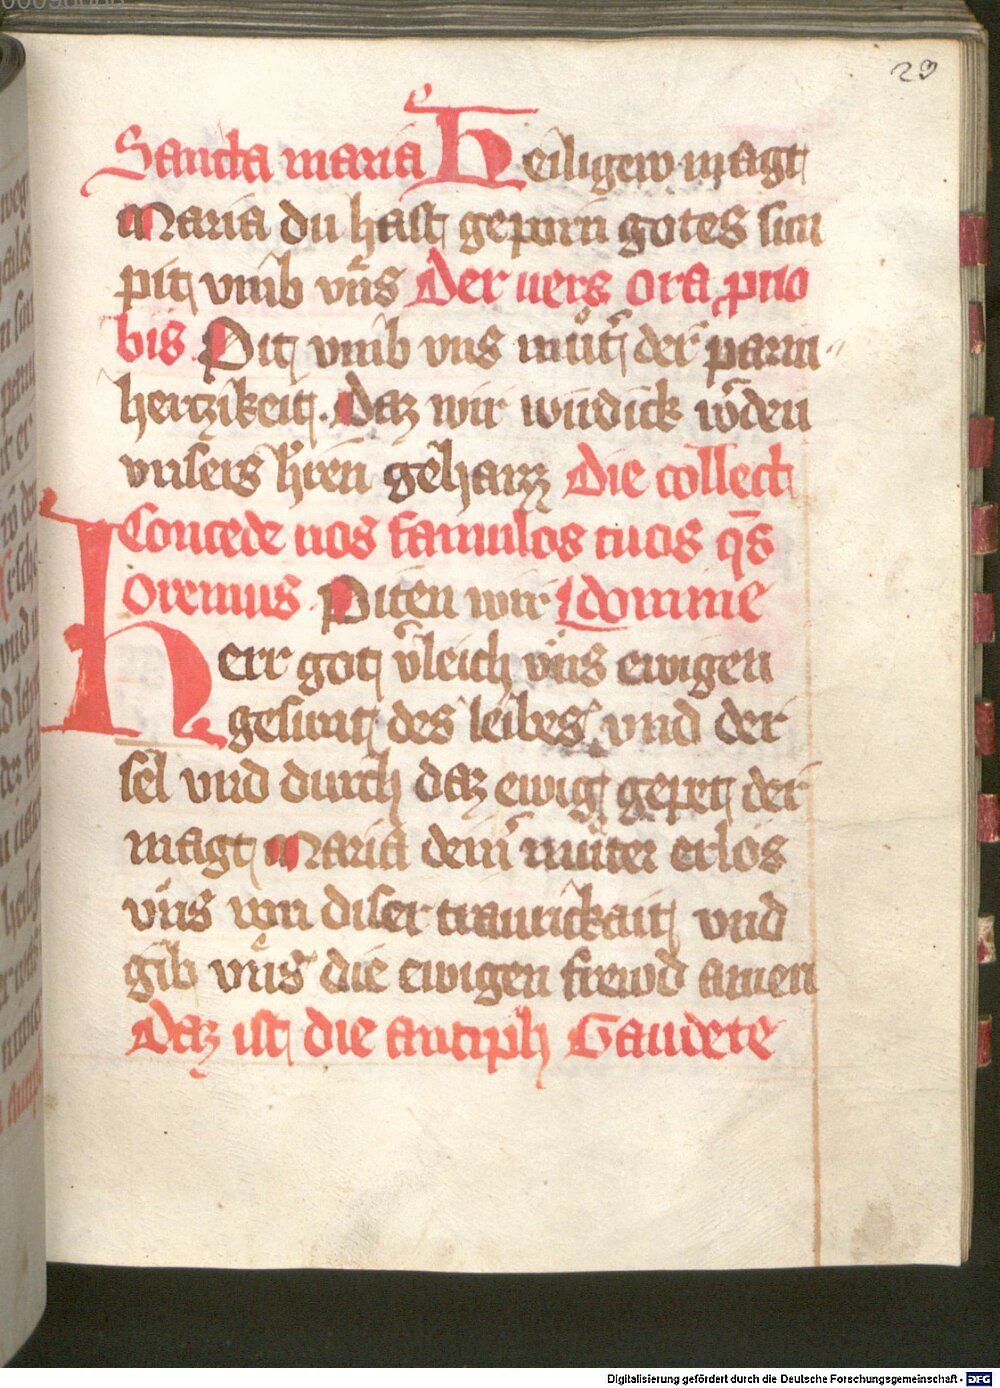 29
Sancta maria Heiligew magt
Maria du hast geporn gotes sun
pit vmb vns Der vers ora p̱ no
bis Pit vmb vns mut̕ der parm
hertzikeit. Daz wir wirdick w̕den
vnsers h̕ren gehaizz Die collect
Concede nos famulos tuos qs̄
Oremus Piten wir domine
Herr got v̕leich vns ewigen
gesunt des leibes vnd der
sel vnd durch daz ewig gepet der
magt Maria dein̕ muter erlös
vns von diser traurickait vnd
gib vns die ewigen frewd amen
Daz ist die antiph Gaudete
Digitalisierung gefördert durch die Deutsche Forschungsgemeinschaft - DFG